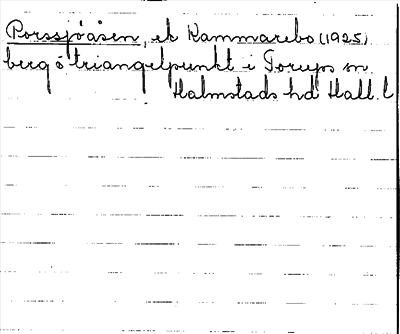 Porssjöåsen, ek Kammarebo (1925)
berg o triangelpunkt i Torups sn
Halmstads hd Hall. l